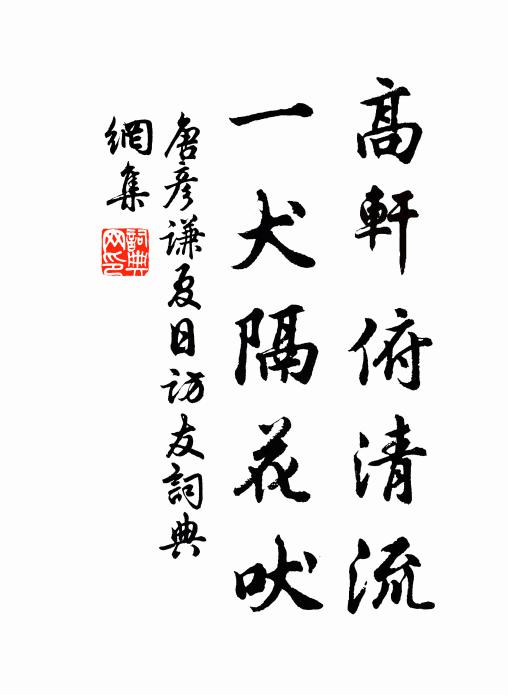 高軒俯清流
一犬隔花吠
唐彥謙夏日訪友詞典
網集
詞典
网印